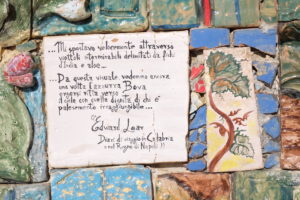 "... Mi spostavo velocemente attraverso
viottoli interminabili delimitati da fichi
d'India e aloe...
... Da questa visuale vedemmo ancora
una volta l'azzurra Bova
ergersi ritta verso
il cielo con quella dignità di chi è
palesemente irraggiungibile...
Edward Lear
Diari di viaggio in Calabria
e nel Regno di Napoli"